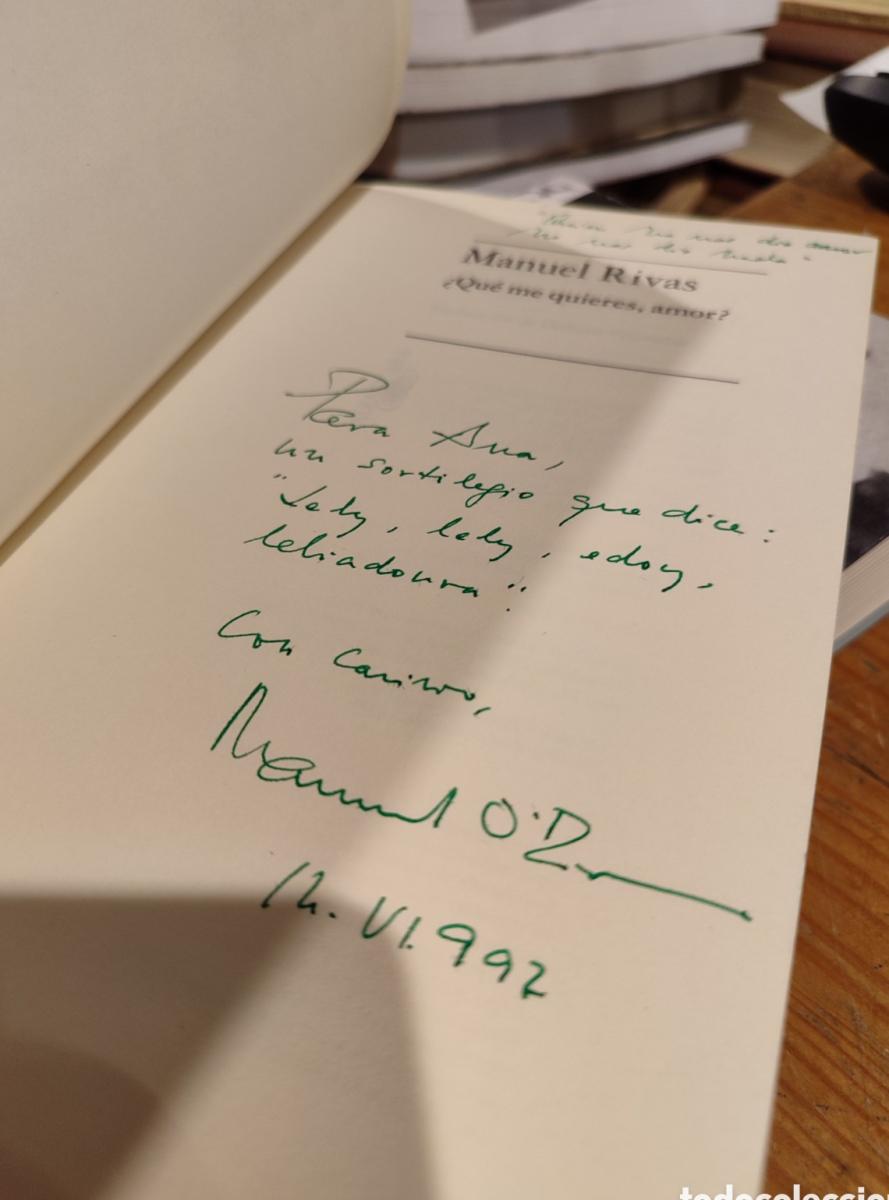 Manuel Rivas
¿Qué me quieres, amor?
Para Ana,
un sortilegio que dice:
"Lely, lely, edoy,
leliadoura".
Con cariño,
Manuel
VI. 992
todocoleccion